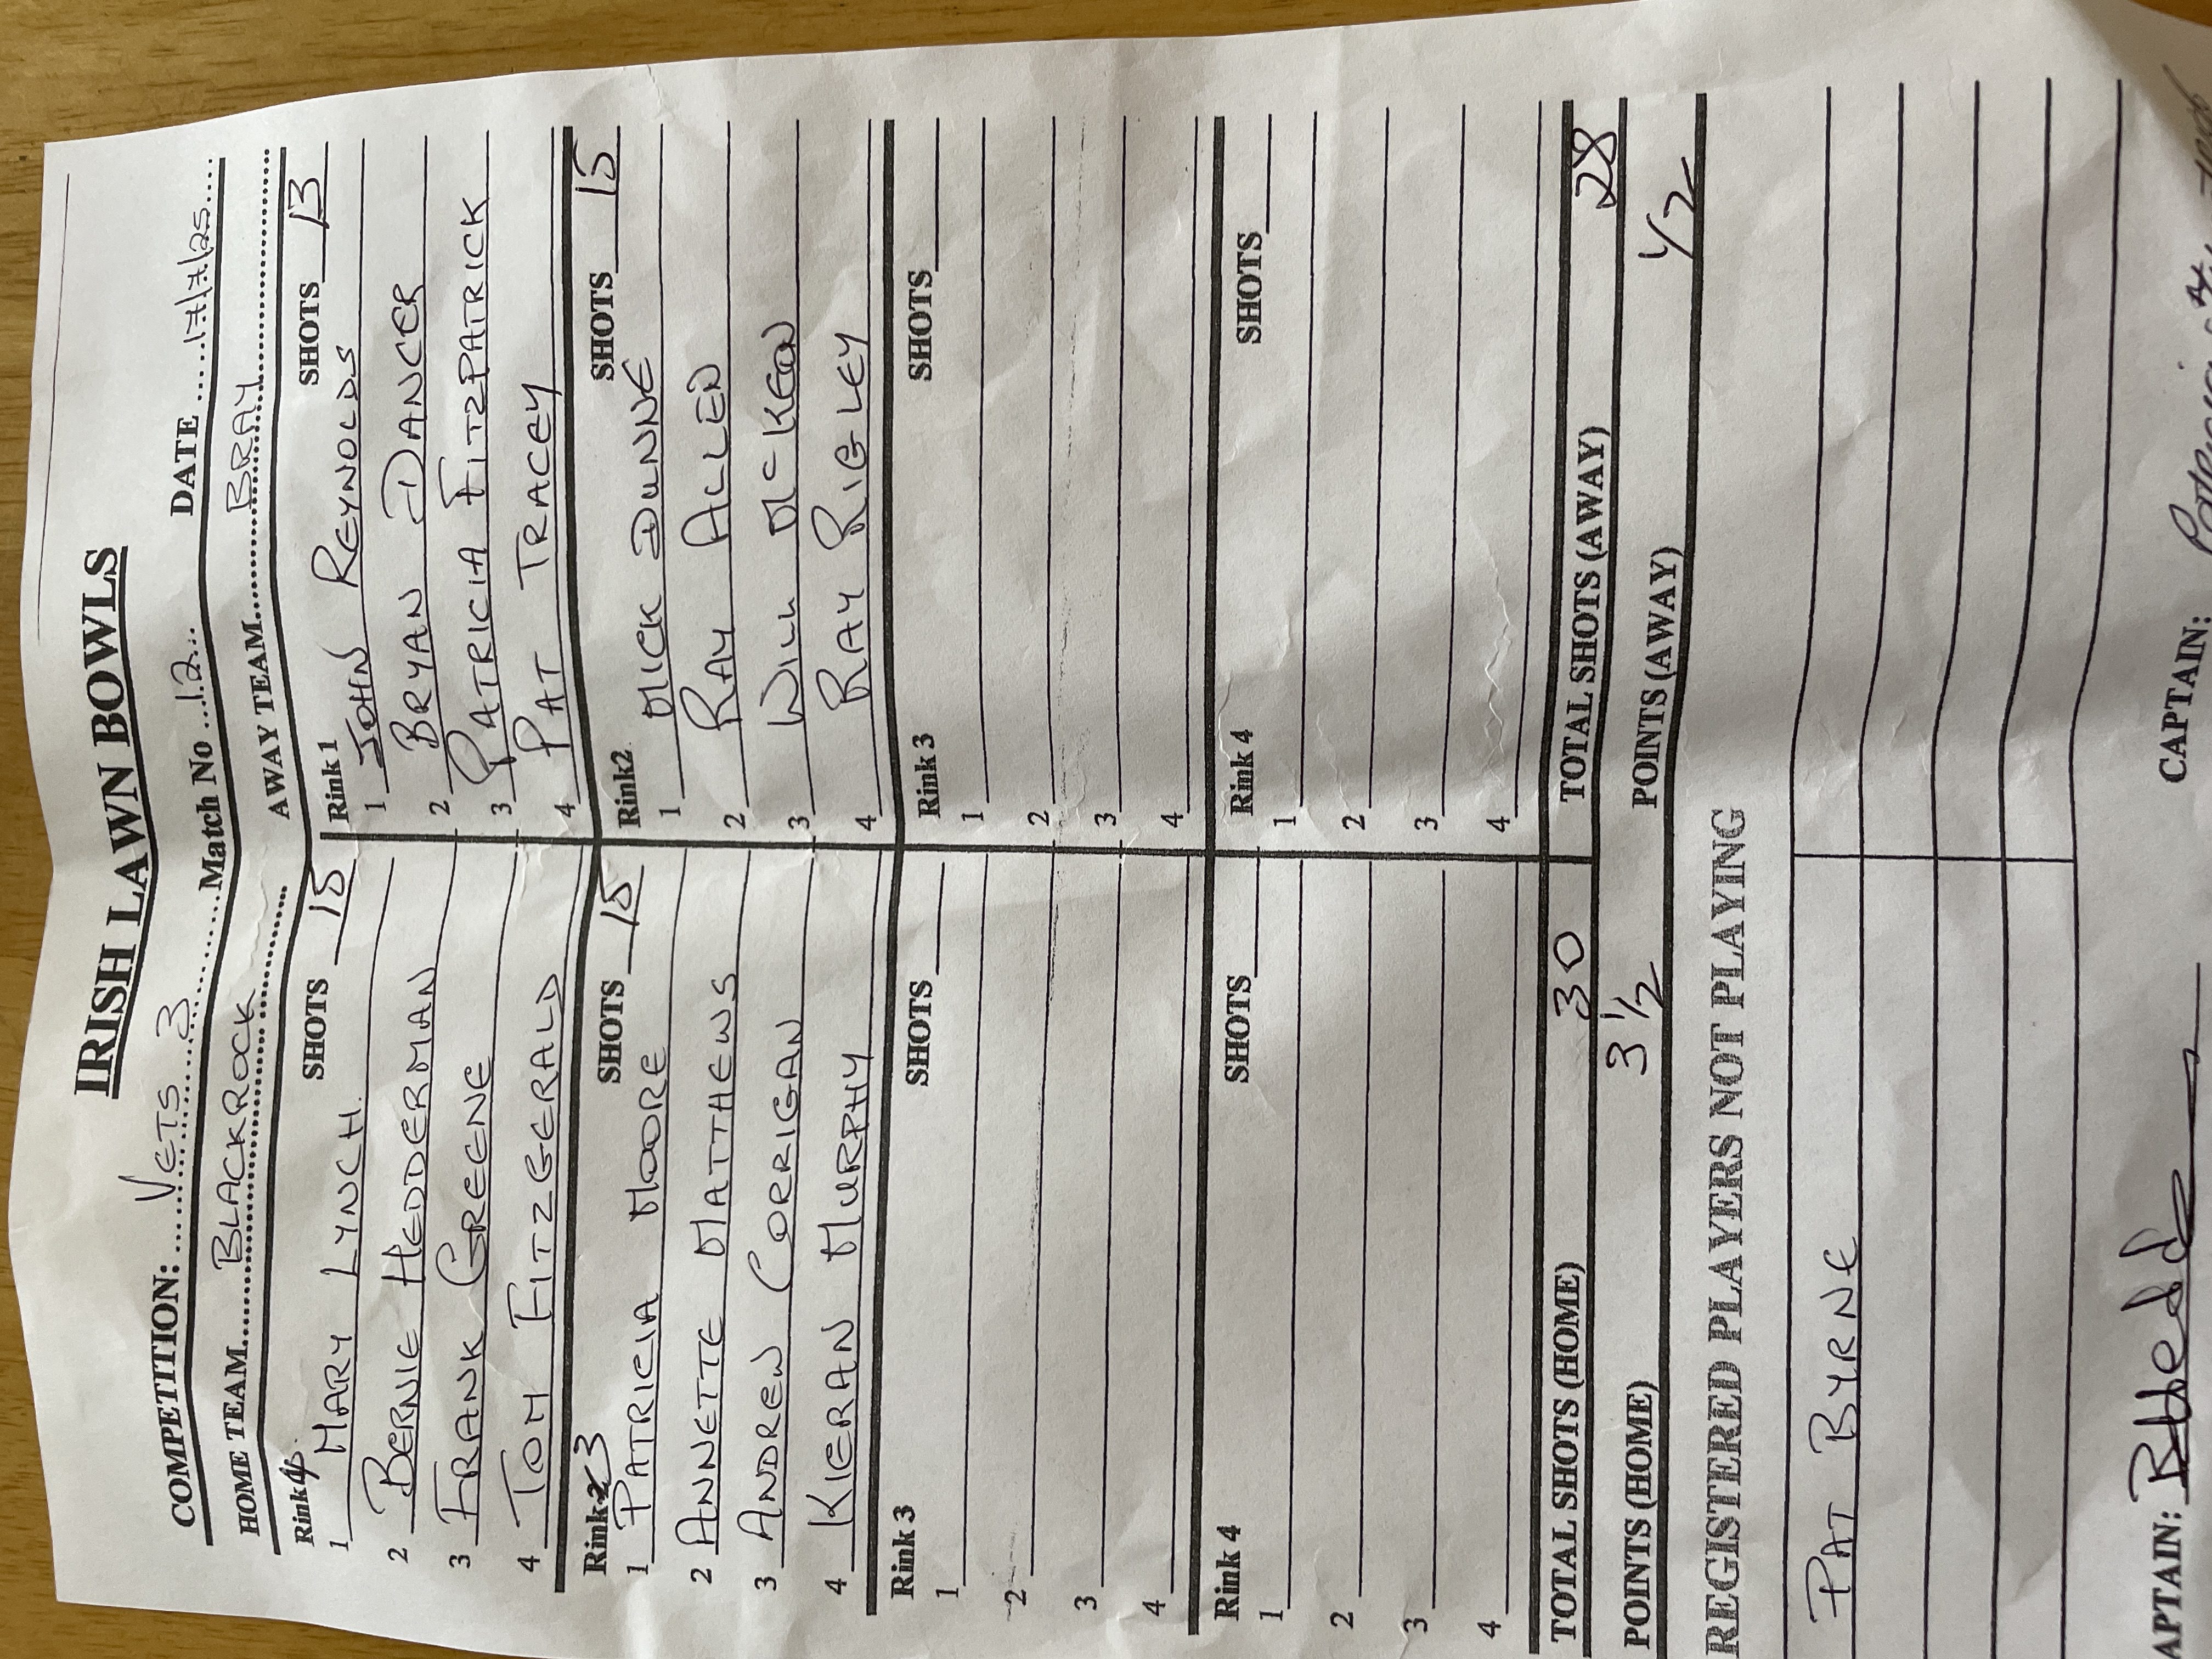 IRISH LAWN BOWLS
COMPETITION: ..... VETS 3 ........ Match No ... 12 ... DATE ..... 17/7/25 .....
HOME TEAM ..... BLACKROCK ..... AWAY TEAM ..... BRAY .....
Rink 4 SHOTS 15 Rink 1 SHOTS 13
1 MARY LYNCH. 1 JOHN REYNOLDS
2 BERNIE HEDDERMAN 2 BRYAN DANCER
3 FRANK GREENE 3 PATRICIA FITZPATRICK
4 TOM FITZGERALD 4 PAT TRACEY
Rink 3 SHOTS 15 Rink2 SHOTS 15
1 PATRICIA MOORE 1 MICK DUNNE
2 ANNETTE MATTHEWS 2 RAY ALLEN
3 ANDREW CORRIGAN 3 WILL MCKEON
4 KIERAN MURPHY 4 RAY RIGLEY
Rink 3 SHOTS Rink 3 SHOTS
1 1
2 2
3 3
4 4
Rink 4 SHOTS Rink 4 SHOTS
1 1
2 2
3 3
4 4
TOTAL SHOTS (HOME) 30 TOTAL SHOTS (AWAY) 28
POINTS (HOME) 3 1/2 POINTS (AWAY) 1/2
REGISTERED PLAYERS NOT PLAYING
PAT BYRNE
APTAIN: CAPTAIN: